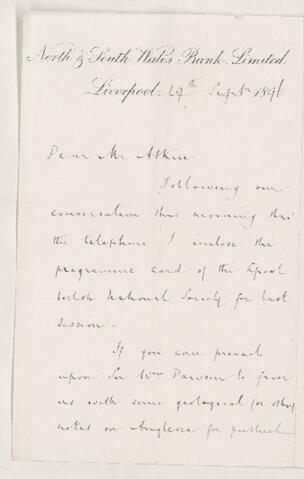 North & South Wales Bank Limited.
Liverpool. 29th Sept 1896
Dear Mr
Following our
conversation this morning thro'
the telephone I inclose the
programme card of the Lpool
Welsh National Society for last
Session.
If you can prevail
upon Sir Wm Dawson to favor
us with some geological (or other)
notes on Anglesea for publication